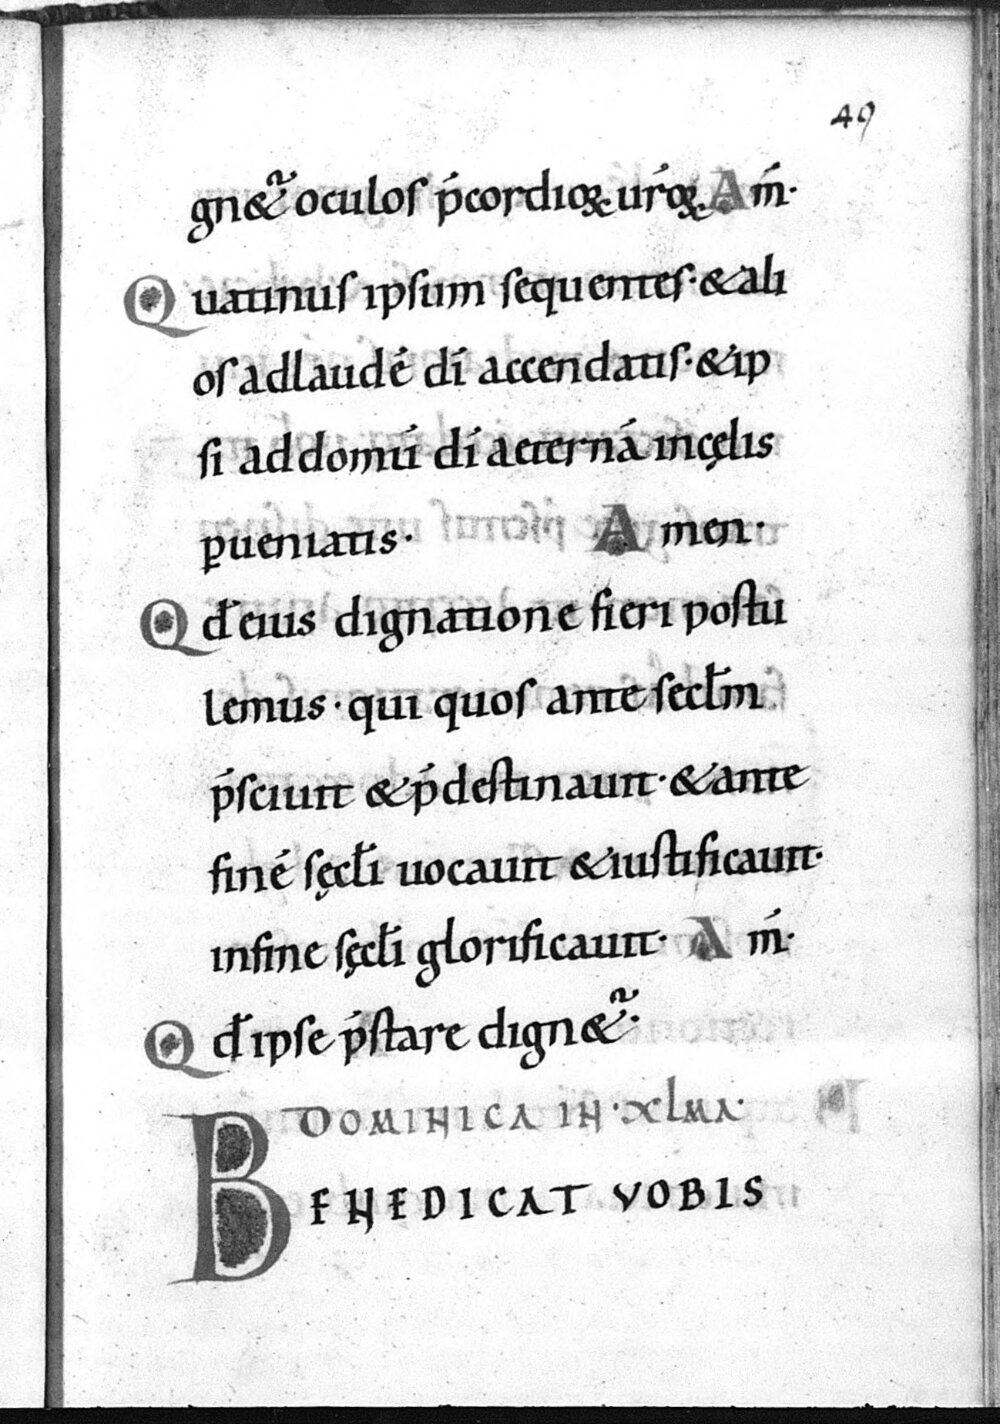 49
gn&̃ oculos p̄cordioꝝ ur̄oꝝ. Am̄·
Quatinus ipsum sequentes· & ali
os ad laudē dī accendatis· & ip
si ad domū dī aeternā in cęlis
ꝑueniatis· Amen·
Qđ eius dignatione fieri postu
lemus· qui quos ante secłm
p̄sciuit & p̄destinauit· & ante
finē sęcłi uocauit & iustificauit·
in fine sęcłi glorificauit· Am̄·
Qđ ipse p̄stare dign&̃·
DOMINICA IN· XLMA·
BENEDICAT VOBIS